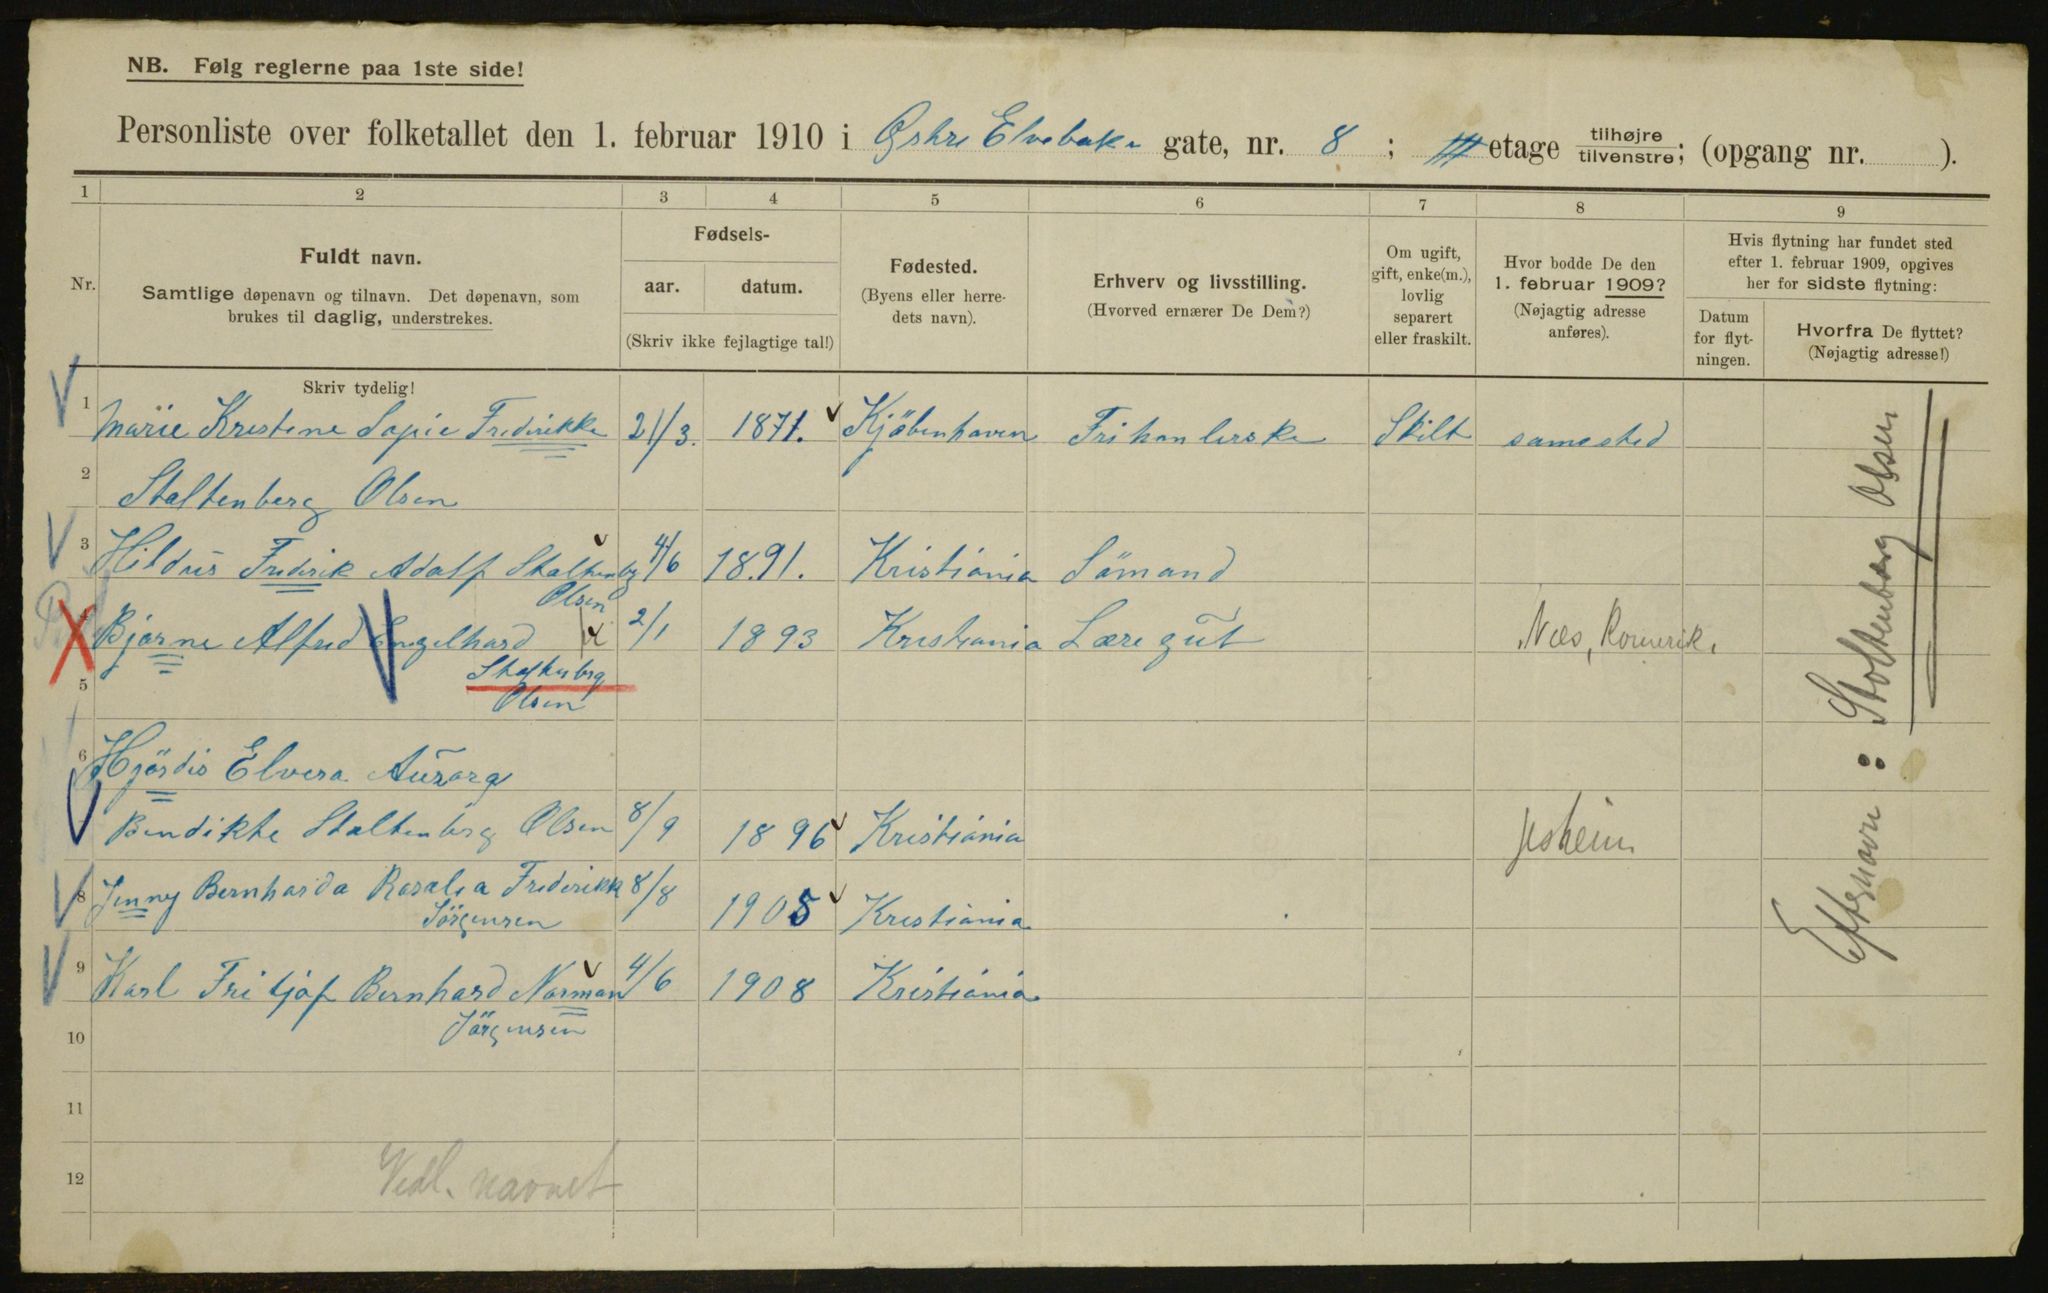 NB. Følg reglerne paa 1ste side!
Personliste over folketallet den 1. februar 1910 i Østre Elvebake gate, nr. 8 ; III etage tilhøjre tilvenstre; (opgang nr. ).
1 2 3 4 5 6 7 8 9
Nr.
Fuldt navn.
Samtlige døpenavn og tilnavn. Det døpenavn, som
brukes til daglig, understrekes.
Fødsels-
aar. datum.
(Skriv ikke fejlagtige tal!)
Fødested.
(Byens eller herre-
dets navn).
Erhverv og livsstilling.
(Hvorved ernærer De Dem?)
Om ugift,
gift, enke(m.),
lovlig
separert
eller fraskilt.
Hvor bodde De den
1. februar 1909?
(Nøjagtig adresse
anføres).
Hvis flytning har fundet sted
efter 1. februar 1909, opgives
her for sidste flytning:
Datum
for flyt-
ningen.
Hvorfra De flyttet?
(Nøjagtig adresse!)
Skriv tydelig!
1 Marie Kristine Sopie Frederikke 21/3. 1871. Kjöbenhaven Frihanlerske Skilt samested
2 Staltenberg Olsen
3 Hildus Frederik Adolf Staltenbg 4/6 1891. Kristiania Sömand
Olsen
4 Bjarne Alfred Engelhard 2/1 1893 Kristiania Læregut Næs, Romerik.
5 Staltenberg
Olsen
6 Hjördis Elvera Aurora
Bendikte Staltenberg Olsen 8/9 1896 Kristiania Jesheim
8 Jenny Bernharda Rosalia Frederikk 8/8 1905 Kristiania
Jörgensen
9 Karl Fritjof Bernhard Norman 4/6 1908 Kristiania
Jörgensen
10
11
12
Vedl. navnet
Efternavn: Stoltenberg Olsen